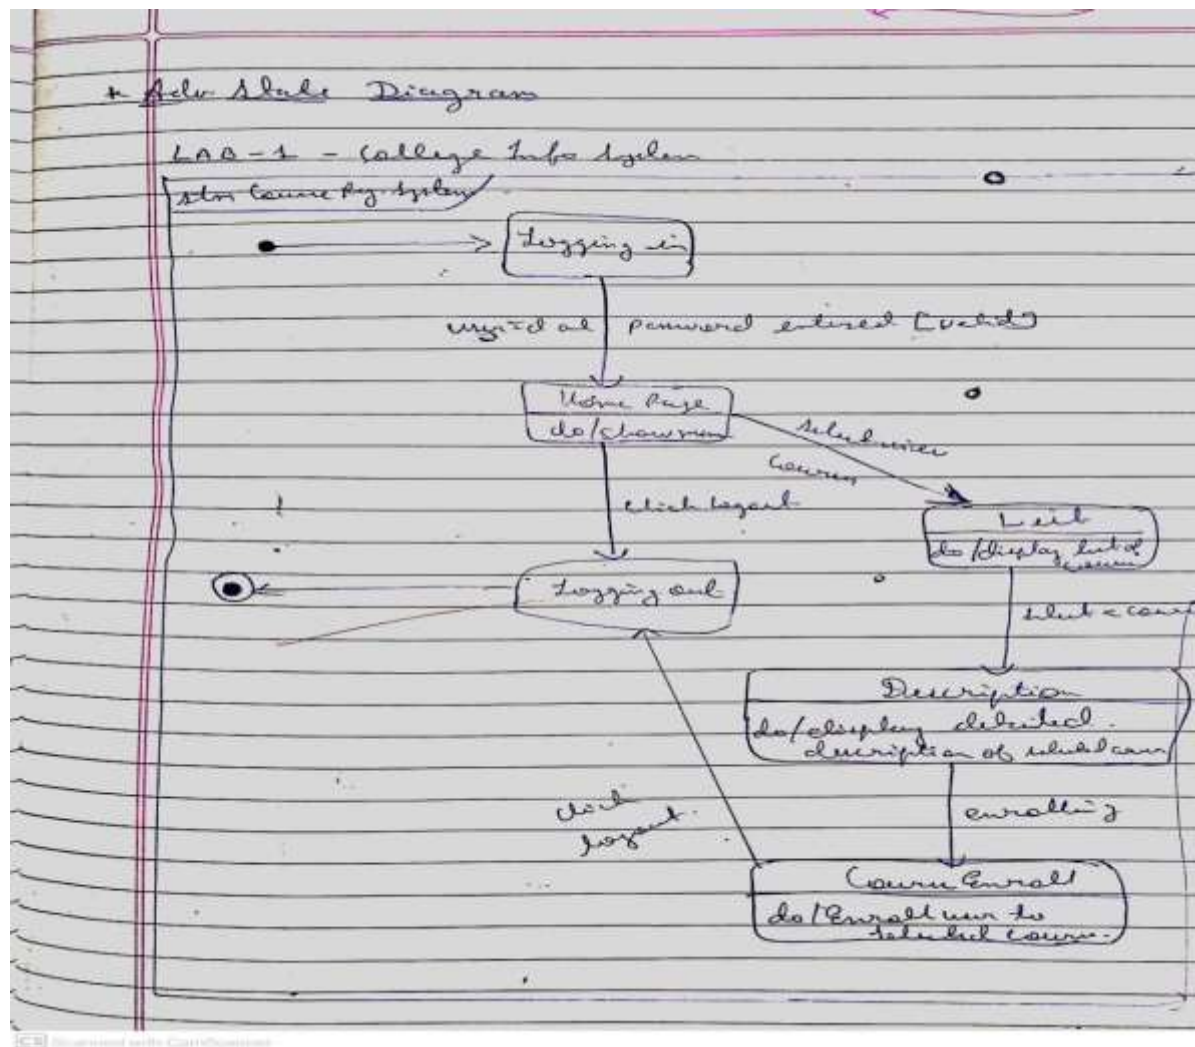 * Adv State Diagram
LAB-1 - College Info System
stm Course Reg. System
Logging in
password entered [valid]
Home Page
do/show menu
select view
courses
click logout
List
do/display list of
courses
Logging out
select a course
Description
do/display detailed
description of selected course
click
logout.
enrolling
Course Enroll
do/Enroll user to
selected course.
CS Scanned with CamScanner